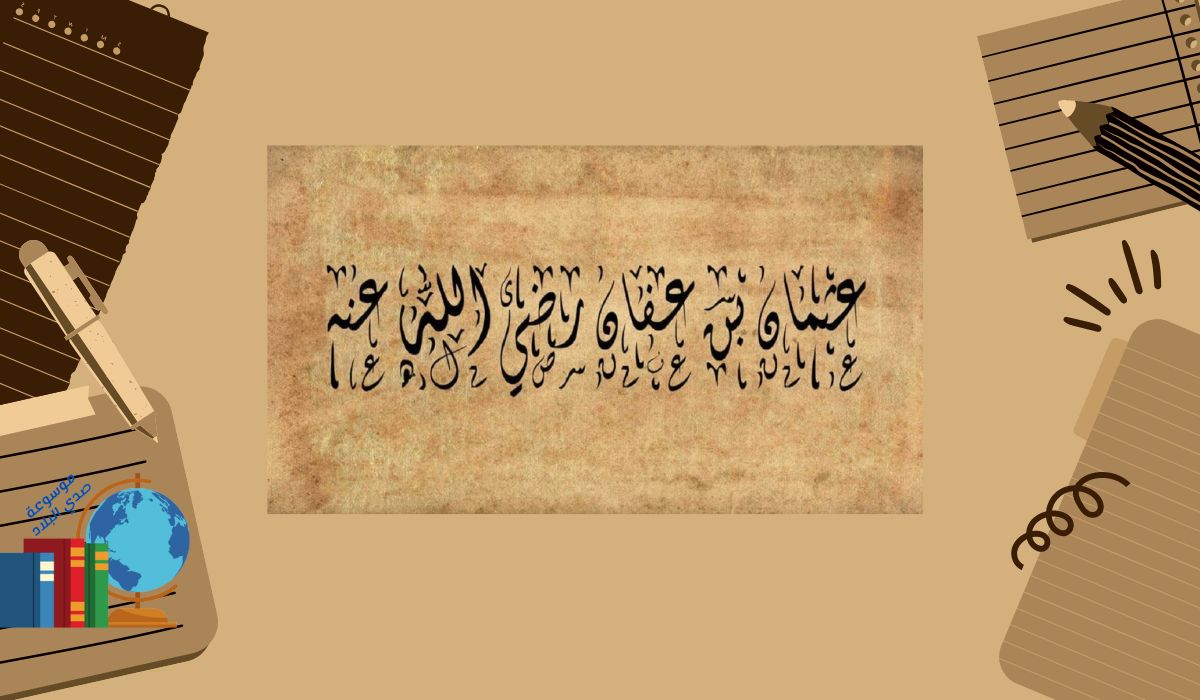 عثمان بن عفان رضي الله عنه
موسوعة
صدى البلاد